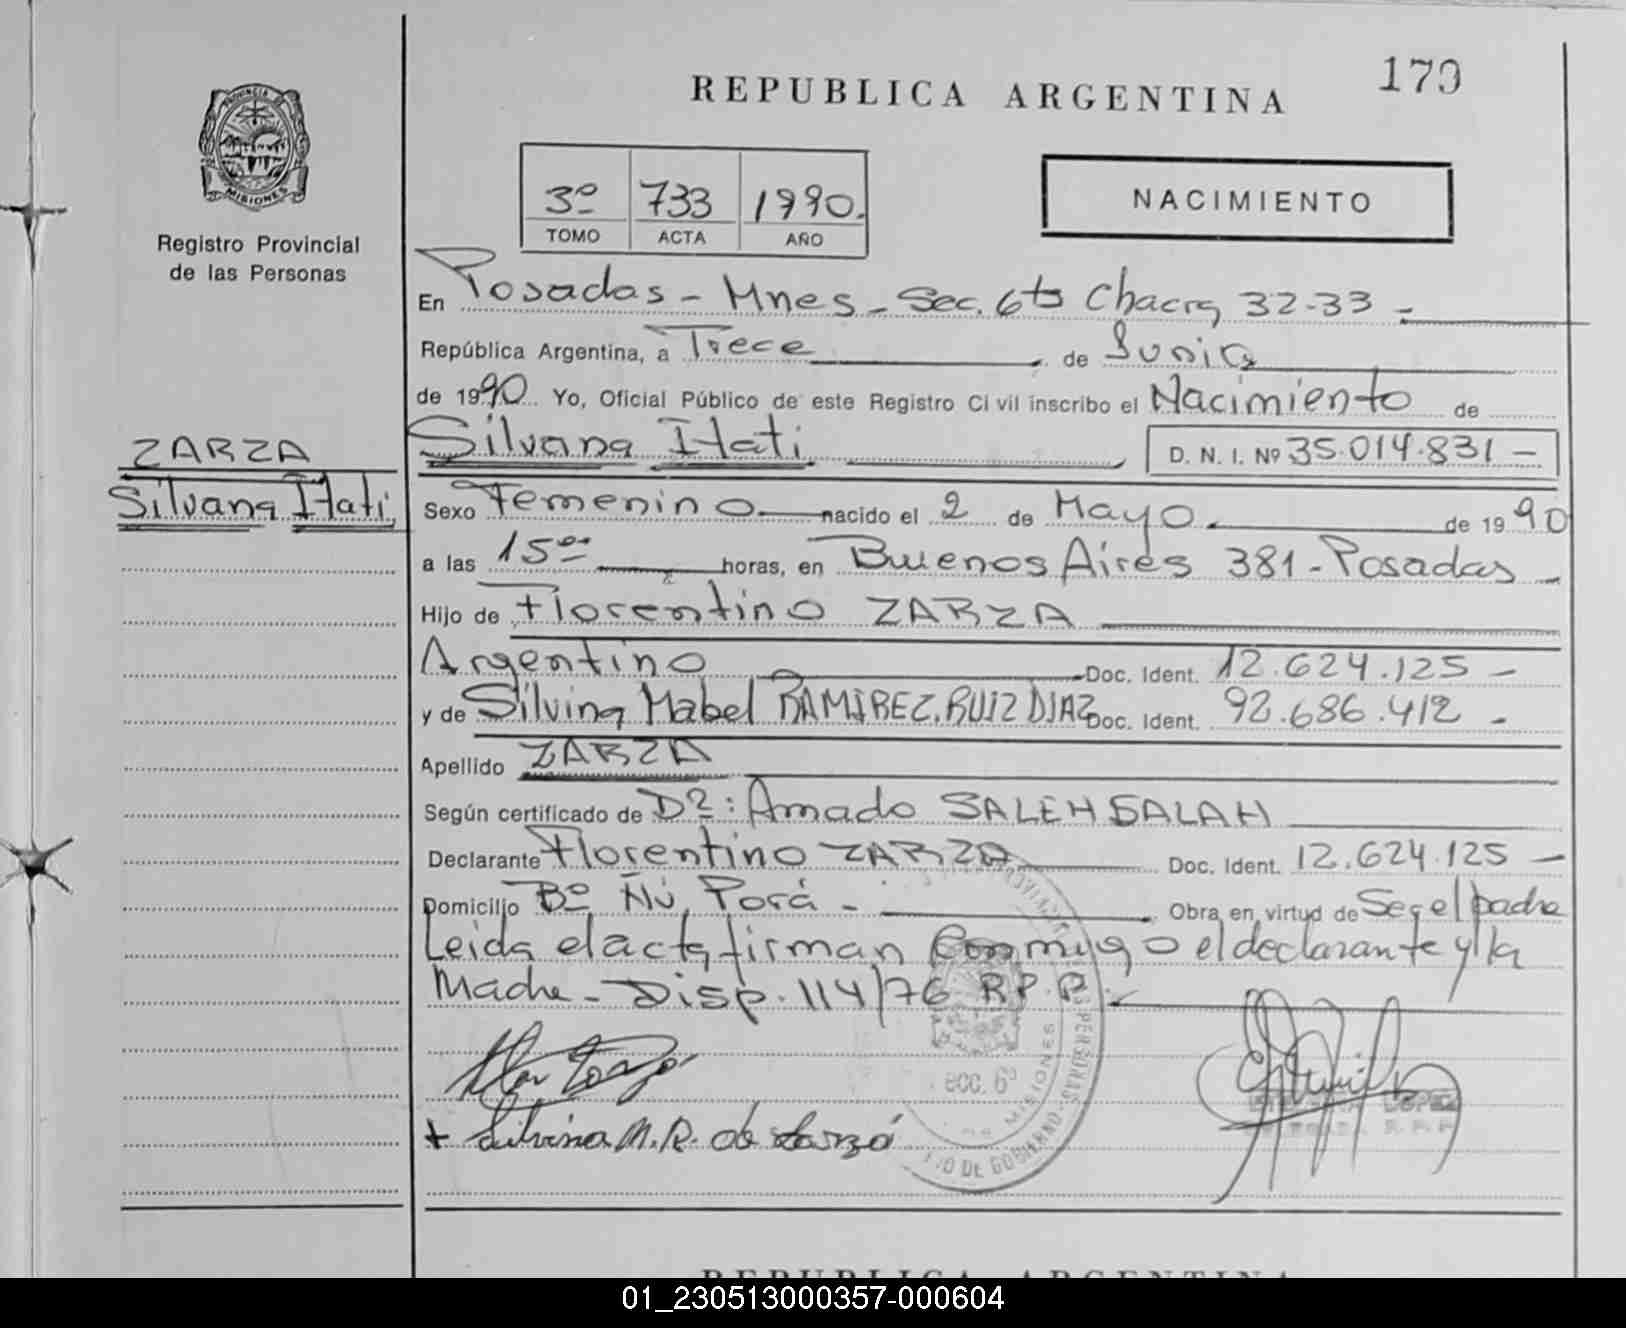 179
REPUBLICA ARGENTINA
PROVINCIA DE
MISIONES
Registro Provincial
de las Personas
3º 733 1990.
TOMO ACTA AÑO
NACIMIENTO
En Posadas - Mnes - Sec. 6ta Chacra 32-33 -
República Argentina, a Trece de Junio
de 1990 Yo, Oficial Público de este Registro Civil inscribo el Nacimiento de
ZARZA
Silvana Itati
Silvana Itati D. N. I. Nº 35.014.831 -
Sexo Femenino nacido el 2 de Mayo de 1990
a las 15 horas, en Buenos Aires 381 - Posadas -
Hijo de Florentino ZARZA
Argentino Doc. Ident. 12.624.125 -
y de Silvina Mabel RAMIREZ RUIZ DIAZ Doc. Ident. 92.686.412 -
Apellido ZARZA
Según certificado de Dº: Amado SALEH SALAH
Declarante Florentino ZARZA Doc. Ident. 12.624.125 -
Domicilio Bº Ñú Porá - Obra en virtud de Ser el padre
Leida el acta firman Conmigo el declarante y la
Madre - Disp. 114/76 R.P.P.
+ Silvina M.R. de Zarza
LOPEZ
R.P.P.
SECC. 6º
MISIONES
PERSONAS
DE GOBIERNO
REPUBLICA ARGENTINA
01_230513000357-000604